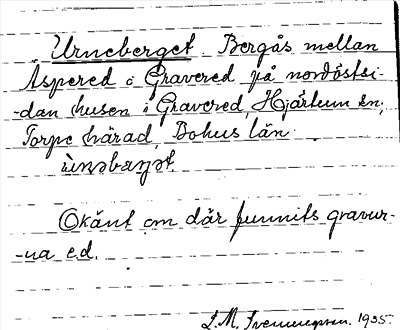 Urneberget. Bergås mellan
Åspered o Gravered på nordöstsi-
-dan husen i Gravered, Hjärtum sn,
Torpe härad, Bohus län.
Okänt om där funnits gravur-
-na ed.
L.M. Svenungsson. 1935.